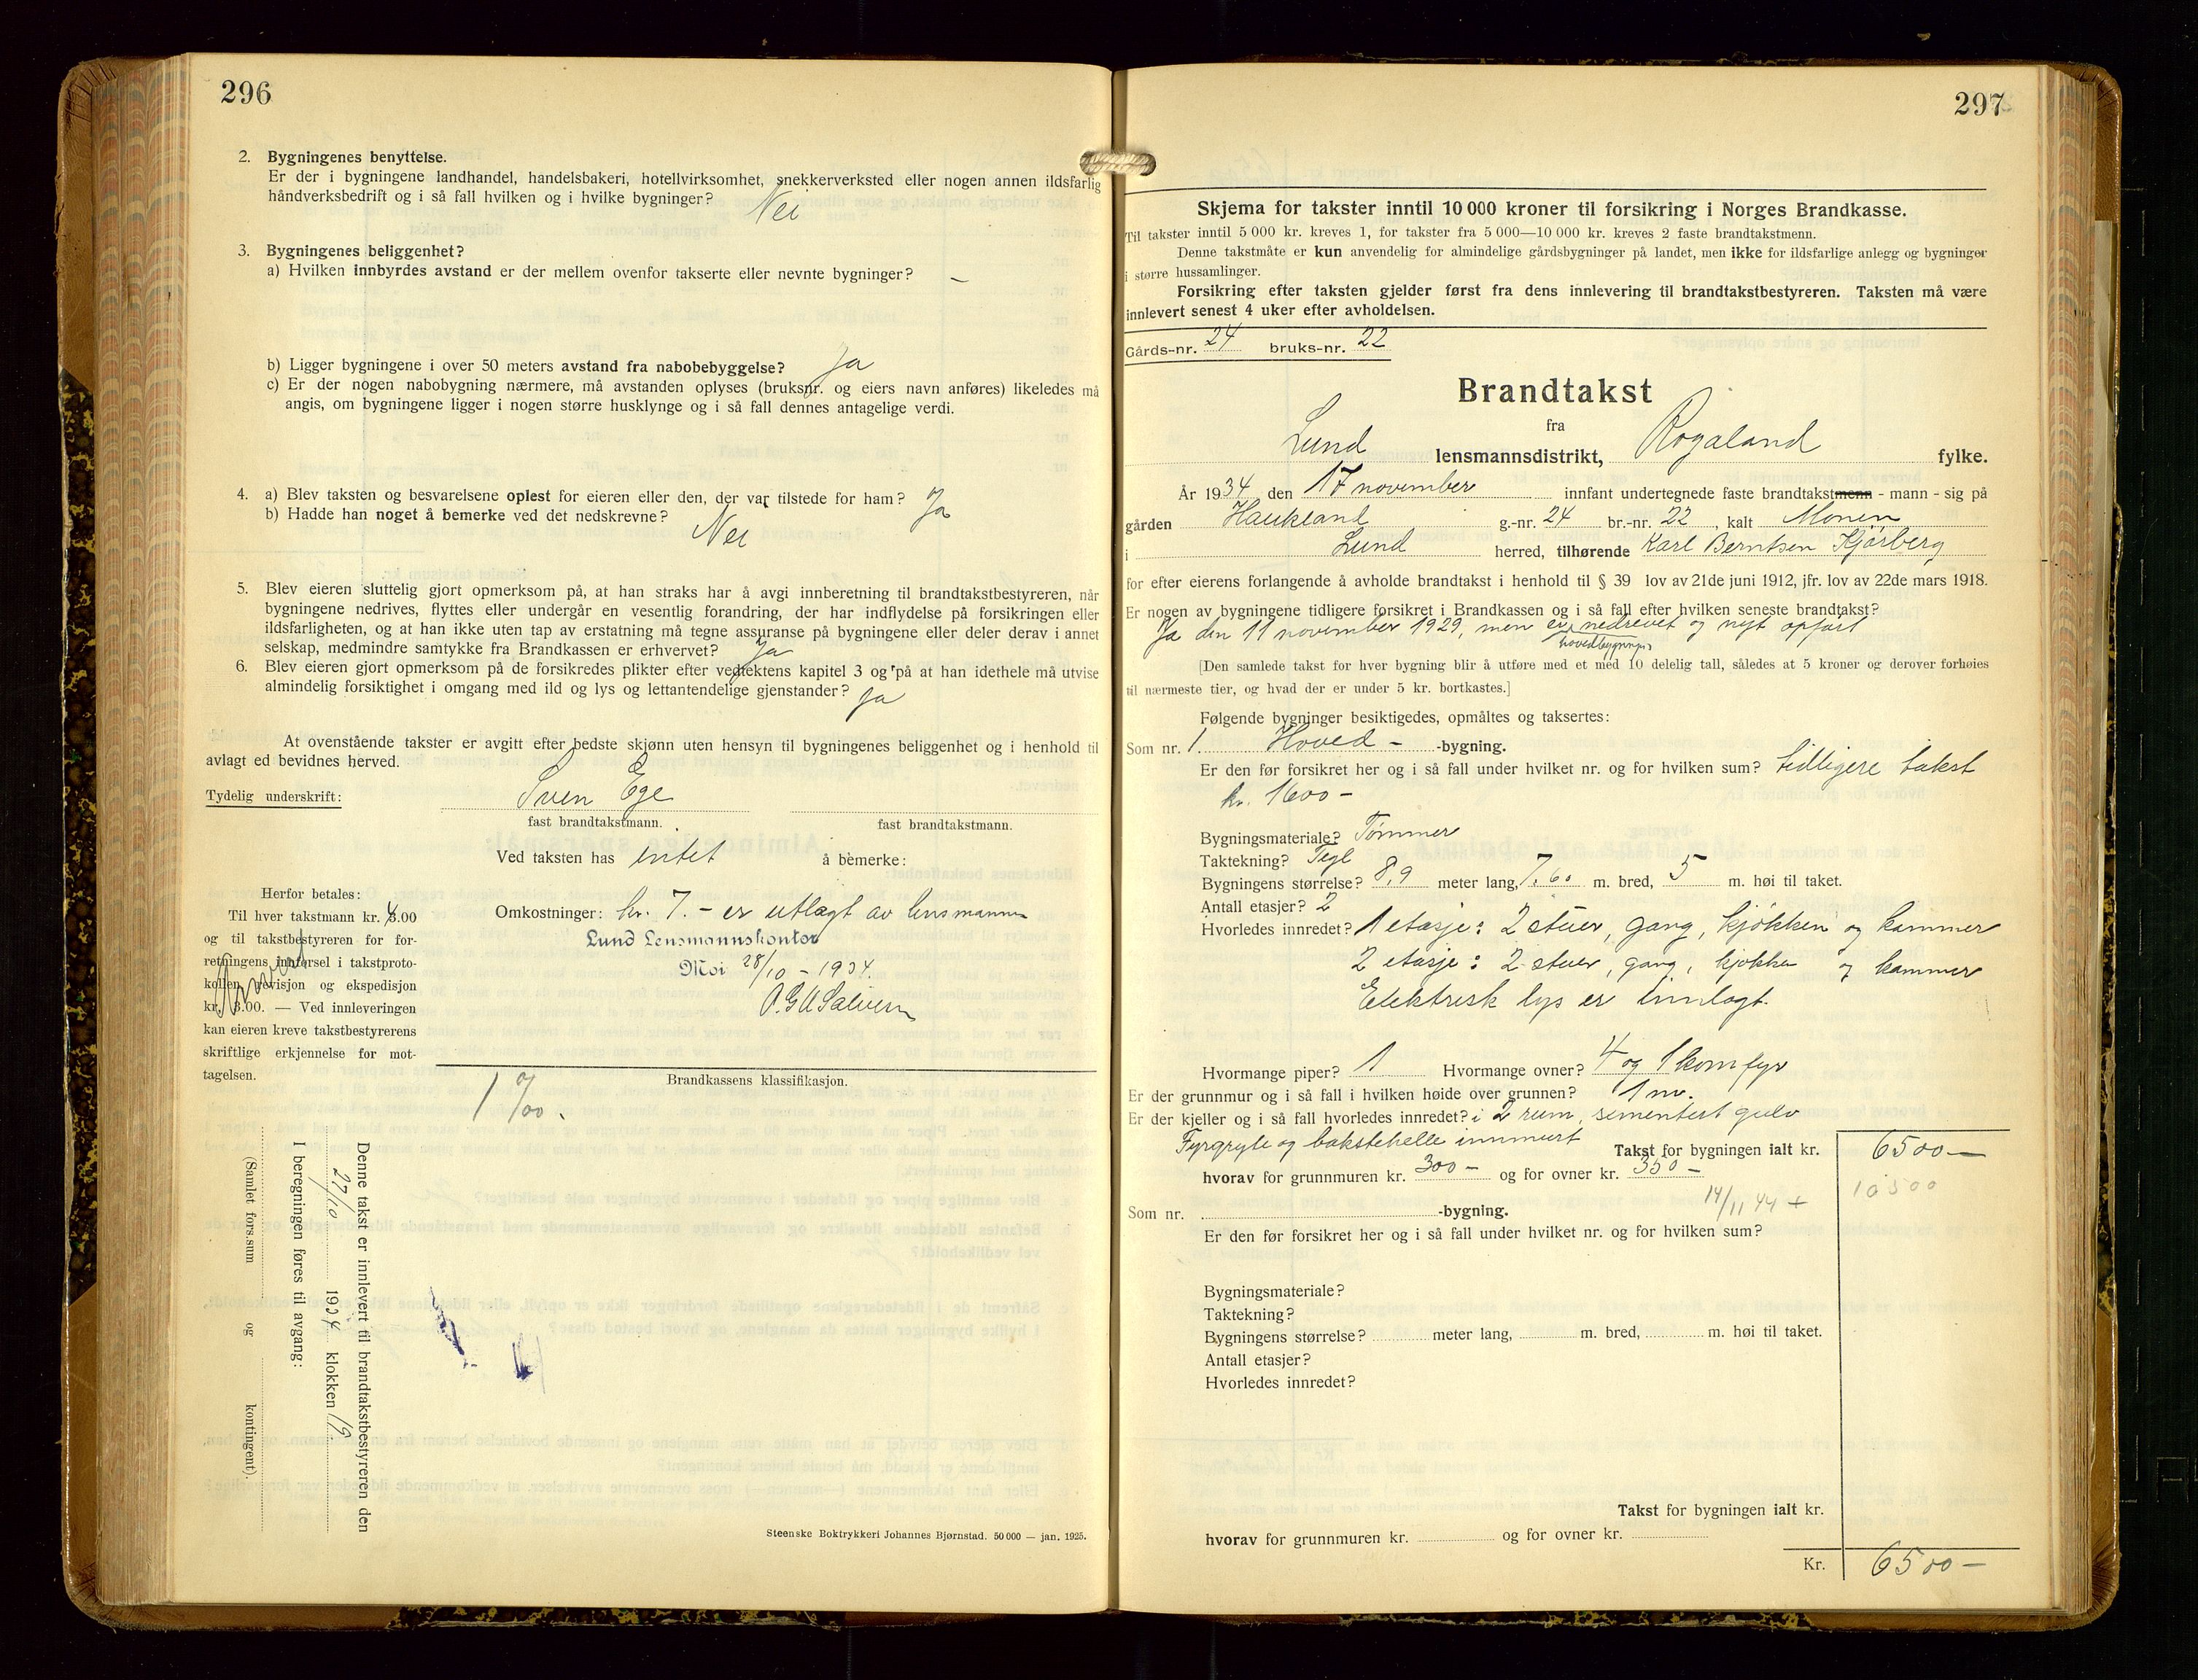 296
2. Bygningenes benyttelse.
Er der i bygningene landhandel, handelsbakeri, hotellvirksomhet, snekkerverksted eller nogen annen ildsfarlig
håndverksbedrift og i så fall hvilken og i hvilke bygninger? Nei
3. Bygningenes beliggenhet?
a) Hvilken innbyrdes avstand er der mellem ovenfor takserte eller nevnte bygninger? –
b) Ligger bygningene i over 50 meters avstand fra nabobebyggelse? Ja
c) Er der nogen nabobygning nærmere, må avstanden oplyses (bruksnr. og eiers navn anføres) likeledes må
angis, om bygningene ligger i nogen større husklynge og i så fall dennes antagelige verdi.
4. a) Blev taksten og besvarelsene oplest for eieren eller den, der var tilstede for ham? Ja
b) Hadde han noget å bemerke ved det nedskrevne? Nei
5. Blev eieren sluttelig gjort opmerksom på, at han straks har å avgi innberetning til brandtakstbestyreren, når
bygningene nedrives, flyttes eller undergår en vesentlig forandring, der har indflydelse på forsikringen eller
ildsfarligheten, og at han ikke uten tap av erstatning må tegne assuranse på bygningene eller deler derav i annet
selskap, medmindre samtykke fra Brandkassen er erhvervet? Ja
6. Blev eieren gjort opmerksom på de forsikredes plikter efter vedtektens kapitel 3 og på at han idethele må utvise
almindelig forsiktighet i omgang med ild og lys og lettantendelige gjenstander? Ja
At ovenstående takster er avgitt efter bedste skjønn uten hensyn til bygningenes beliggenhet og i henhold til
avlagt ed bevidnes herved.
Tydelig underskrift: Sven Ege
fast brandtakstmann. fast brandtakstmann.
Ved taksten has intet å bemerke:
Herfor betales:
Til hver takstmann kr. 4.00
og til takstbestyreren for for-
retningens innførsel i takstproto-
kollen, revisjon og ekspedisjon
kr. 3.00. — Ved innleveringen
kan eieren kreve takstbestyrerens
skriftlige erkjennelse for mot-
tagelsen.
Omkostninger: kr. 7.- er utlagt av lensmannen
Lund Lensmannskontor
Moi 28/10 - 1934.
Brandkassens klassifikasjon.
1 0/00.
Denne takst er innlevert til brandtakstbestyreren den
27/10 1934 klokken 19.
I beregningen føres til avgang:
(Samlet fors.sum og kontingent).
Steenske Boktrykkeri Johannes Bjørnstad. 50 000 — jan. 1925.
297
Skjema for takster inntil 10 000 kroner til forsikring i Norges Brandkasse.
Til takster inntil 5 000 kr. kreves 1, for takster fra 5 000—10 000 kr. kreves 2 faste brandtakstmenn.
Denne takstmåte er kun anvendelig for almindelige gårdsbygninger på landet, men ikke for ildsfarlige anlegg og bygninger
i større hussamlinger.
Forsikring efter taksten gjelder først fra dens innlevering til brandtakstbestyreren. Taksten må være
innlevert senest 4 uker efter avholdelsen.
Gårds-nr. 24 bruks-nr. 22
Brandtakst
fra
Lund lensmannsdistrikt, Rogaland fylke.
År 1934 den 17 november innfant undertegnede faste brandtakstmenn - mann - sig på
gården Haukland g.-nr. 24 br.-nr. 22, kalt Monen
i Lund herred, tilhørende Karl Berntsen Kjørberg
for efter eierens forlangende å avholde brandtakst i henhold til § 39 lov av 21de juni 1912, jfr. lov av 22de mars 1918.
Er nogen av bygningene tidligere forsikret i Brandkassen og i så fall efter hvilken seneste brandtakst?
Ja den 11 november 1929, men er nedrevet og nyt opført
hovedbygningen
[Den samlede takst for hver bygning blir å utføre med et med 10 delelig tall, således at 5 kroner og derover forhøies
til nærmeste tier, og hvad der er under 5 kr. bortkastes.]
Følgende bygninger besiktigedes, opmåltes og taksertes:
Som nr. 1. Hoved - -bygning.
Er den før forsikret her og i så fall under hvilket nr. og for hvilken sum? tidligere takst
kr. 1600 -
Bygningsmateriale? Tømmer
Taktekning? Tegl
Bygningens størrelse? 8,9 meter lang, 7,60 m. bred, 5 m. høi til taket.
Antall etasjer? 2
Hvorledes innredet? 1 etasje: 2 stuer, gang, kjøkken og kammer
2 etasje: 2 stuer, gang, kjøkken og kammer
Elektrisk lys er innlagt.
Hvormange piper? 1 Hvormange ovner? 4 og 1 komfyr
Er der grunnmur og i så fall i hvilken høide over grunnen? 1 m.
Er der kjeller og i så fall hvorledes innredet? i 2 rum, sementert gulv
Fyrgryte og bakstehelle innmurt Takst for bygningen ialt kr. 6500 —
hvorav for grunnmuren kr. 300 - og for ovner kr. 350 -
14/11 44 + 10500
Som nr. -bygning.
Er den før forsikret her og i så fall under hvilket nr. og for hvilken sum?
Bygningsmateriale?
Taktekning?
Bygningens størrelse? meter lang, m. bred, m. høi til taket.
Antall etasjer?
Hvorledes innredet?
Takst for bygningen ialt kr.
hvorav for grunnmuren kr. og for ovner kr.
Kr. 6500 —